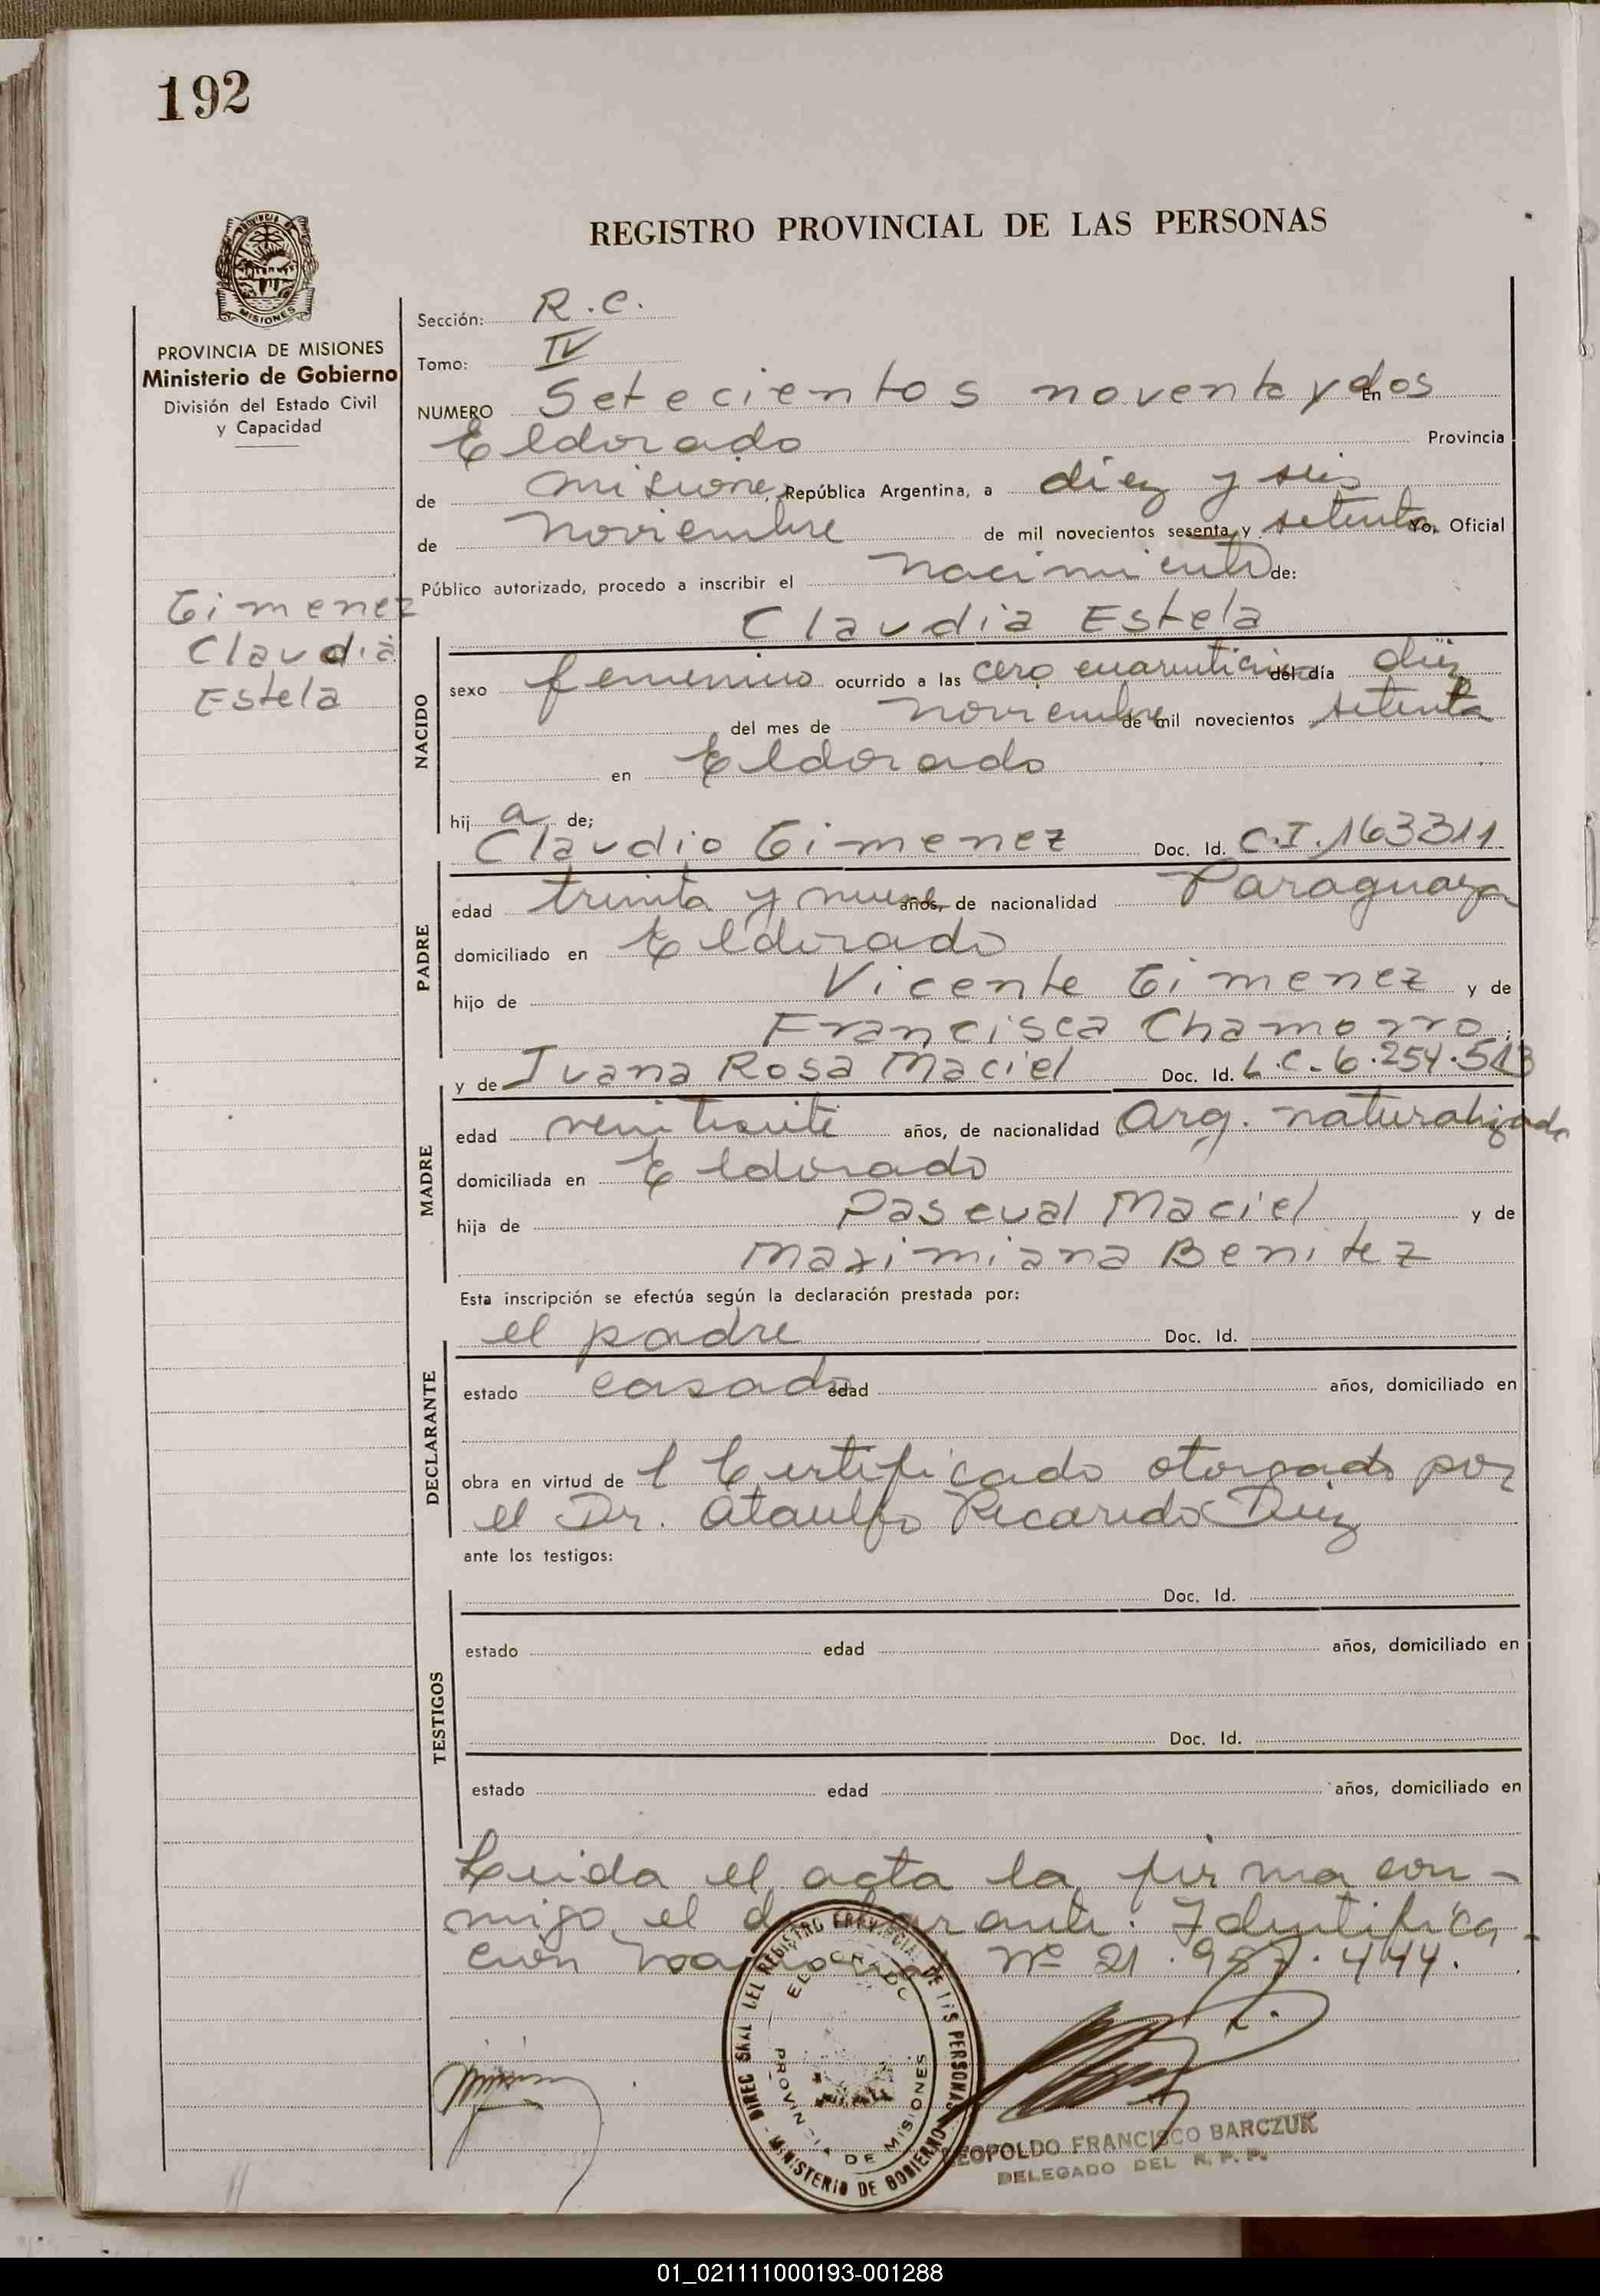 192
REGISTRO PROVINCIAL DE LAS PERSONAS
PROVINCIA DE MISIONES
Ministerio de Gobierno
División del Estado Civil
y Capacidad
Gimenez
Claudia
Estela
Sección: R.C.
Tomo: IV
NUMERO Setecientos noventa y dos En
Eldorado Provincia
de Misiones, República Argentina, a diez y seis
de Noviembre de mil novecientos sesenta y setenta Yo, Oficial
Público autorizado, procedo a inscribir el Nacimiento de:
Claudia Estela
NACIDO
sexo femenino ocurrido a las cero cuarenticinco del día diez
del mes de Noviembre de mil novecientos setenta
en Eldorado
hij a de;
Claudio Gimenez Doc. Id. C.I. 163311
PADRE
edad treinta y nueve años, de nacionalidad Paraguaya
domiciliado en Eldorado
hijo de Vicente Gimenez y de
Francisca Chamorro;
y de Juana Rosa Maciel Doc. Id. L.C. 6.254.513
MADRE
edad años, de nacionalidad Arg. naturalizada
domiciliada en Eldorado
hija de Pascual Maciel y de
Maximiana Benitez
Esta inscripción se efectúa según la declaración prestada por:
el padre Doc. Id.
DECLARANTE
estado casado edad años, domiciliado en
obra en virtud de l Certificado otorgado por
el Dr. Ataulfo Ricardo
ante los testigos:
Doc. Id.
TESTIGOS
estado edad años, domiciliado en
Doc. Id.
estado edad años, domiciliado en
Leida el acta la firma con-
migo el declarante. Identifica-
ción Nacional Nº 21.987.444.
DIREC GRAL DEL REGISTRO PROVINCIAL DE LAS PERSONAS
ELDORADO
PROVINCIA DE MISIONES
MINISTERIO DE GOBIERNO
LEOPOLDO FRANCISCO BARCZUK
DELEGADO DEL R. P. P.
01_021111000193-001288